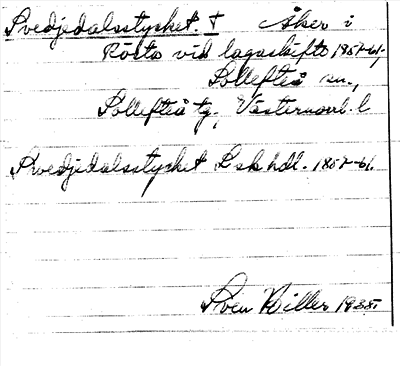 Svedjedalsstycket. † Åker i
Rösta vid lagaskifte 1857-61.
Sollefteå sn.,
Sollefteå tg., Västernorrl. l
Svedjedalsstycket L sk hdl. 1857-61.
Sven Willer 1935.